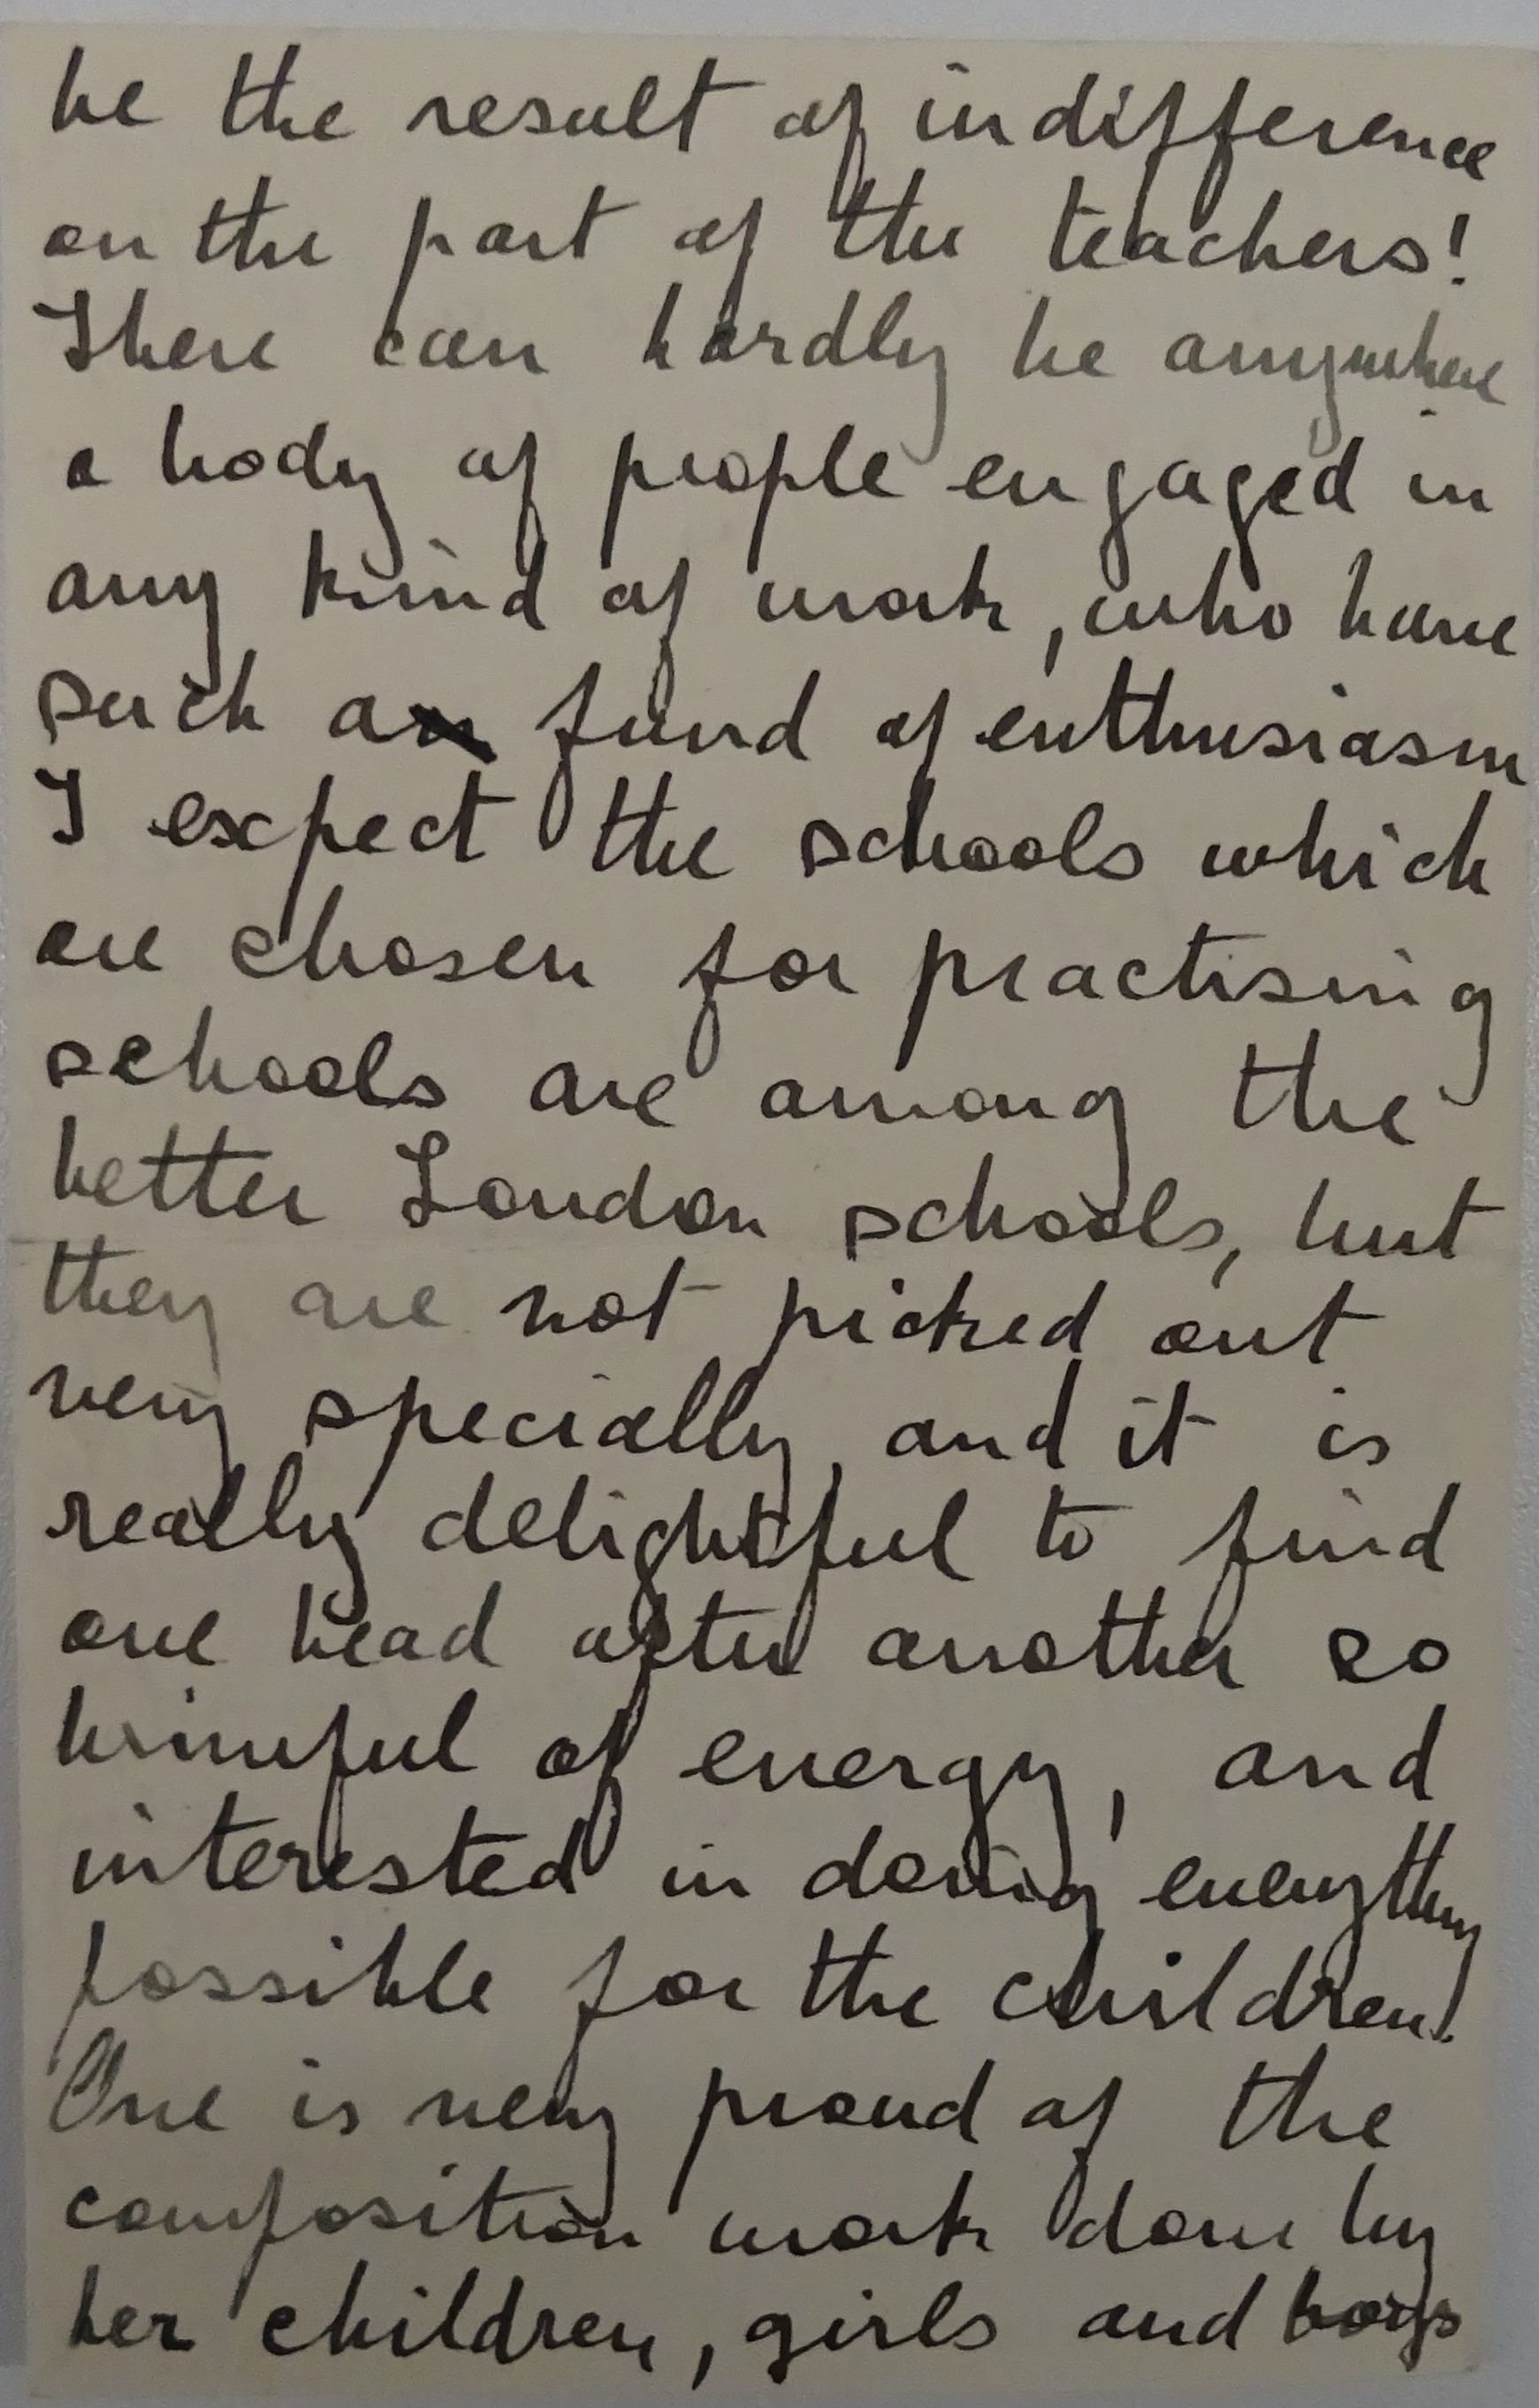 be the result of indifference
on the part of the teachers!
There can hardly be anywhere
a body of people engaged in
any kind of work, who have
such a fund of enthusiasm
I expect the schools which
are chosen for practising
schools are among the
better London schools, but
they are not picked out
very specially, and it is
really delightful to find
one head after another so
brimful of energy, and
interested in doing everything
possible for the children.
One is very proud of the
composition work done by
her children, girls and boys